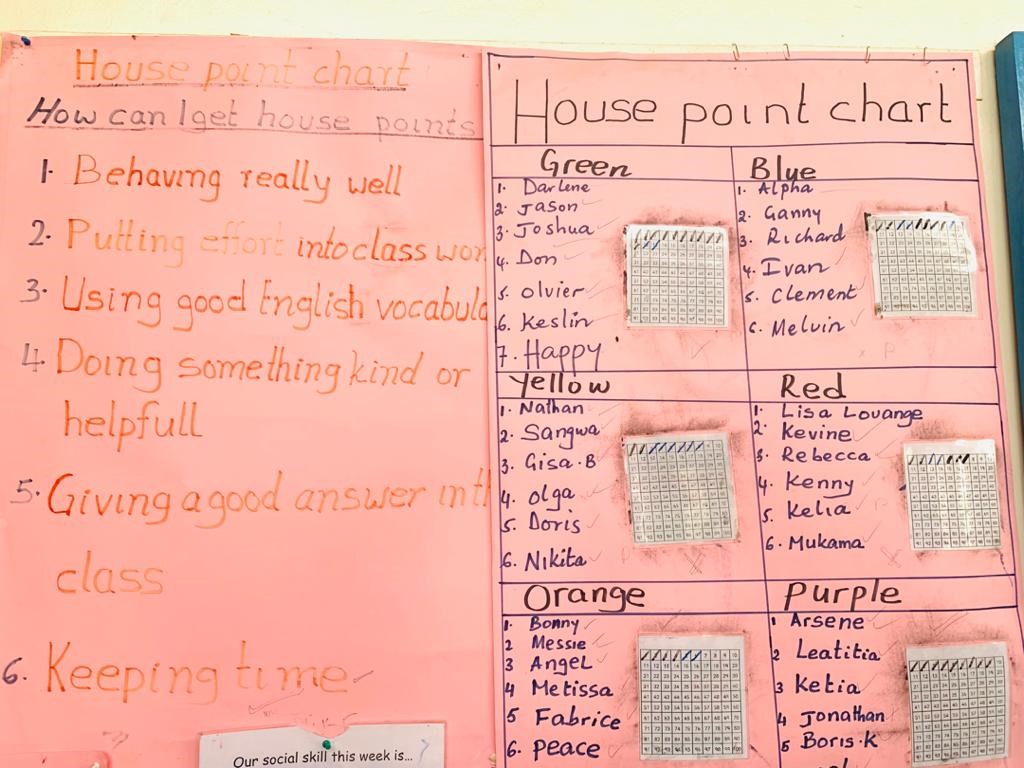 House point chart
How can I get house points
1. Behaving really well
2. Putting effort into class wor
3. Using good English vocabula
4. Doing something kind or
helpfull
5. Giving a good answer in th
class
6. Keeping time
Our social skill this week is...
House point chart
Green
1. Darlene
2. Jason
3. Joshua
4. Don
5. Olvier
6. Keslin
7. Happy
Blue
1. Alpha
2. Ganny
3. Richard
4. Ivan
5. Clement
6. Melvin
Yellow
1. Nathan
2. Sangwa
3. Gisa.B
4. Olga
5. Doris
6. Nikita
Red
1. Lisa Louange
2. Kevine
3. Rebecca
4. Kenny
5. Kelia
6. Mukama
Orange
1. Bonny
2 Messie
3 Angel
4 Metissa
5 Fabrice
6. peace
Purple
1 Arsene
2 Leatitia
3 Ketia
4 Jonathan
5 Boris.K